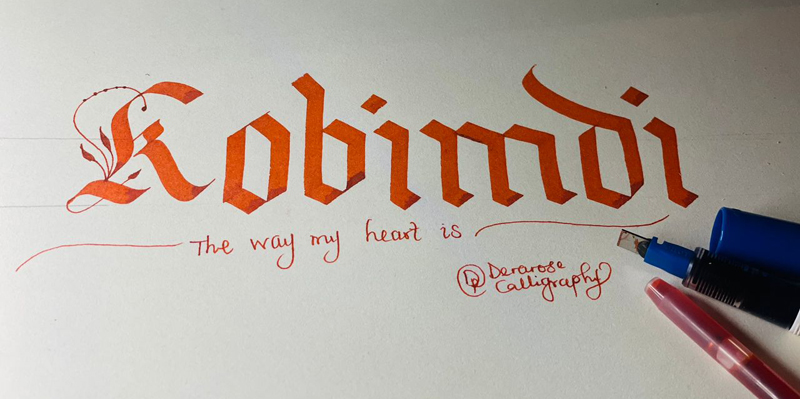 Kobimdi
The way my heart is
DR Derarose
Calligraphy